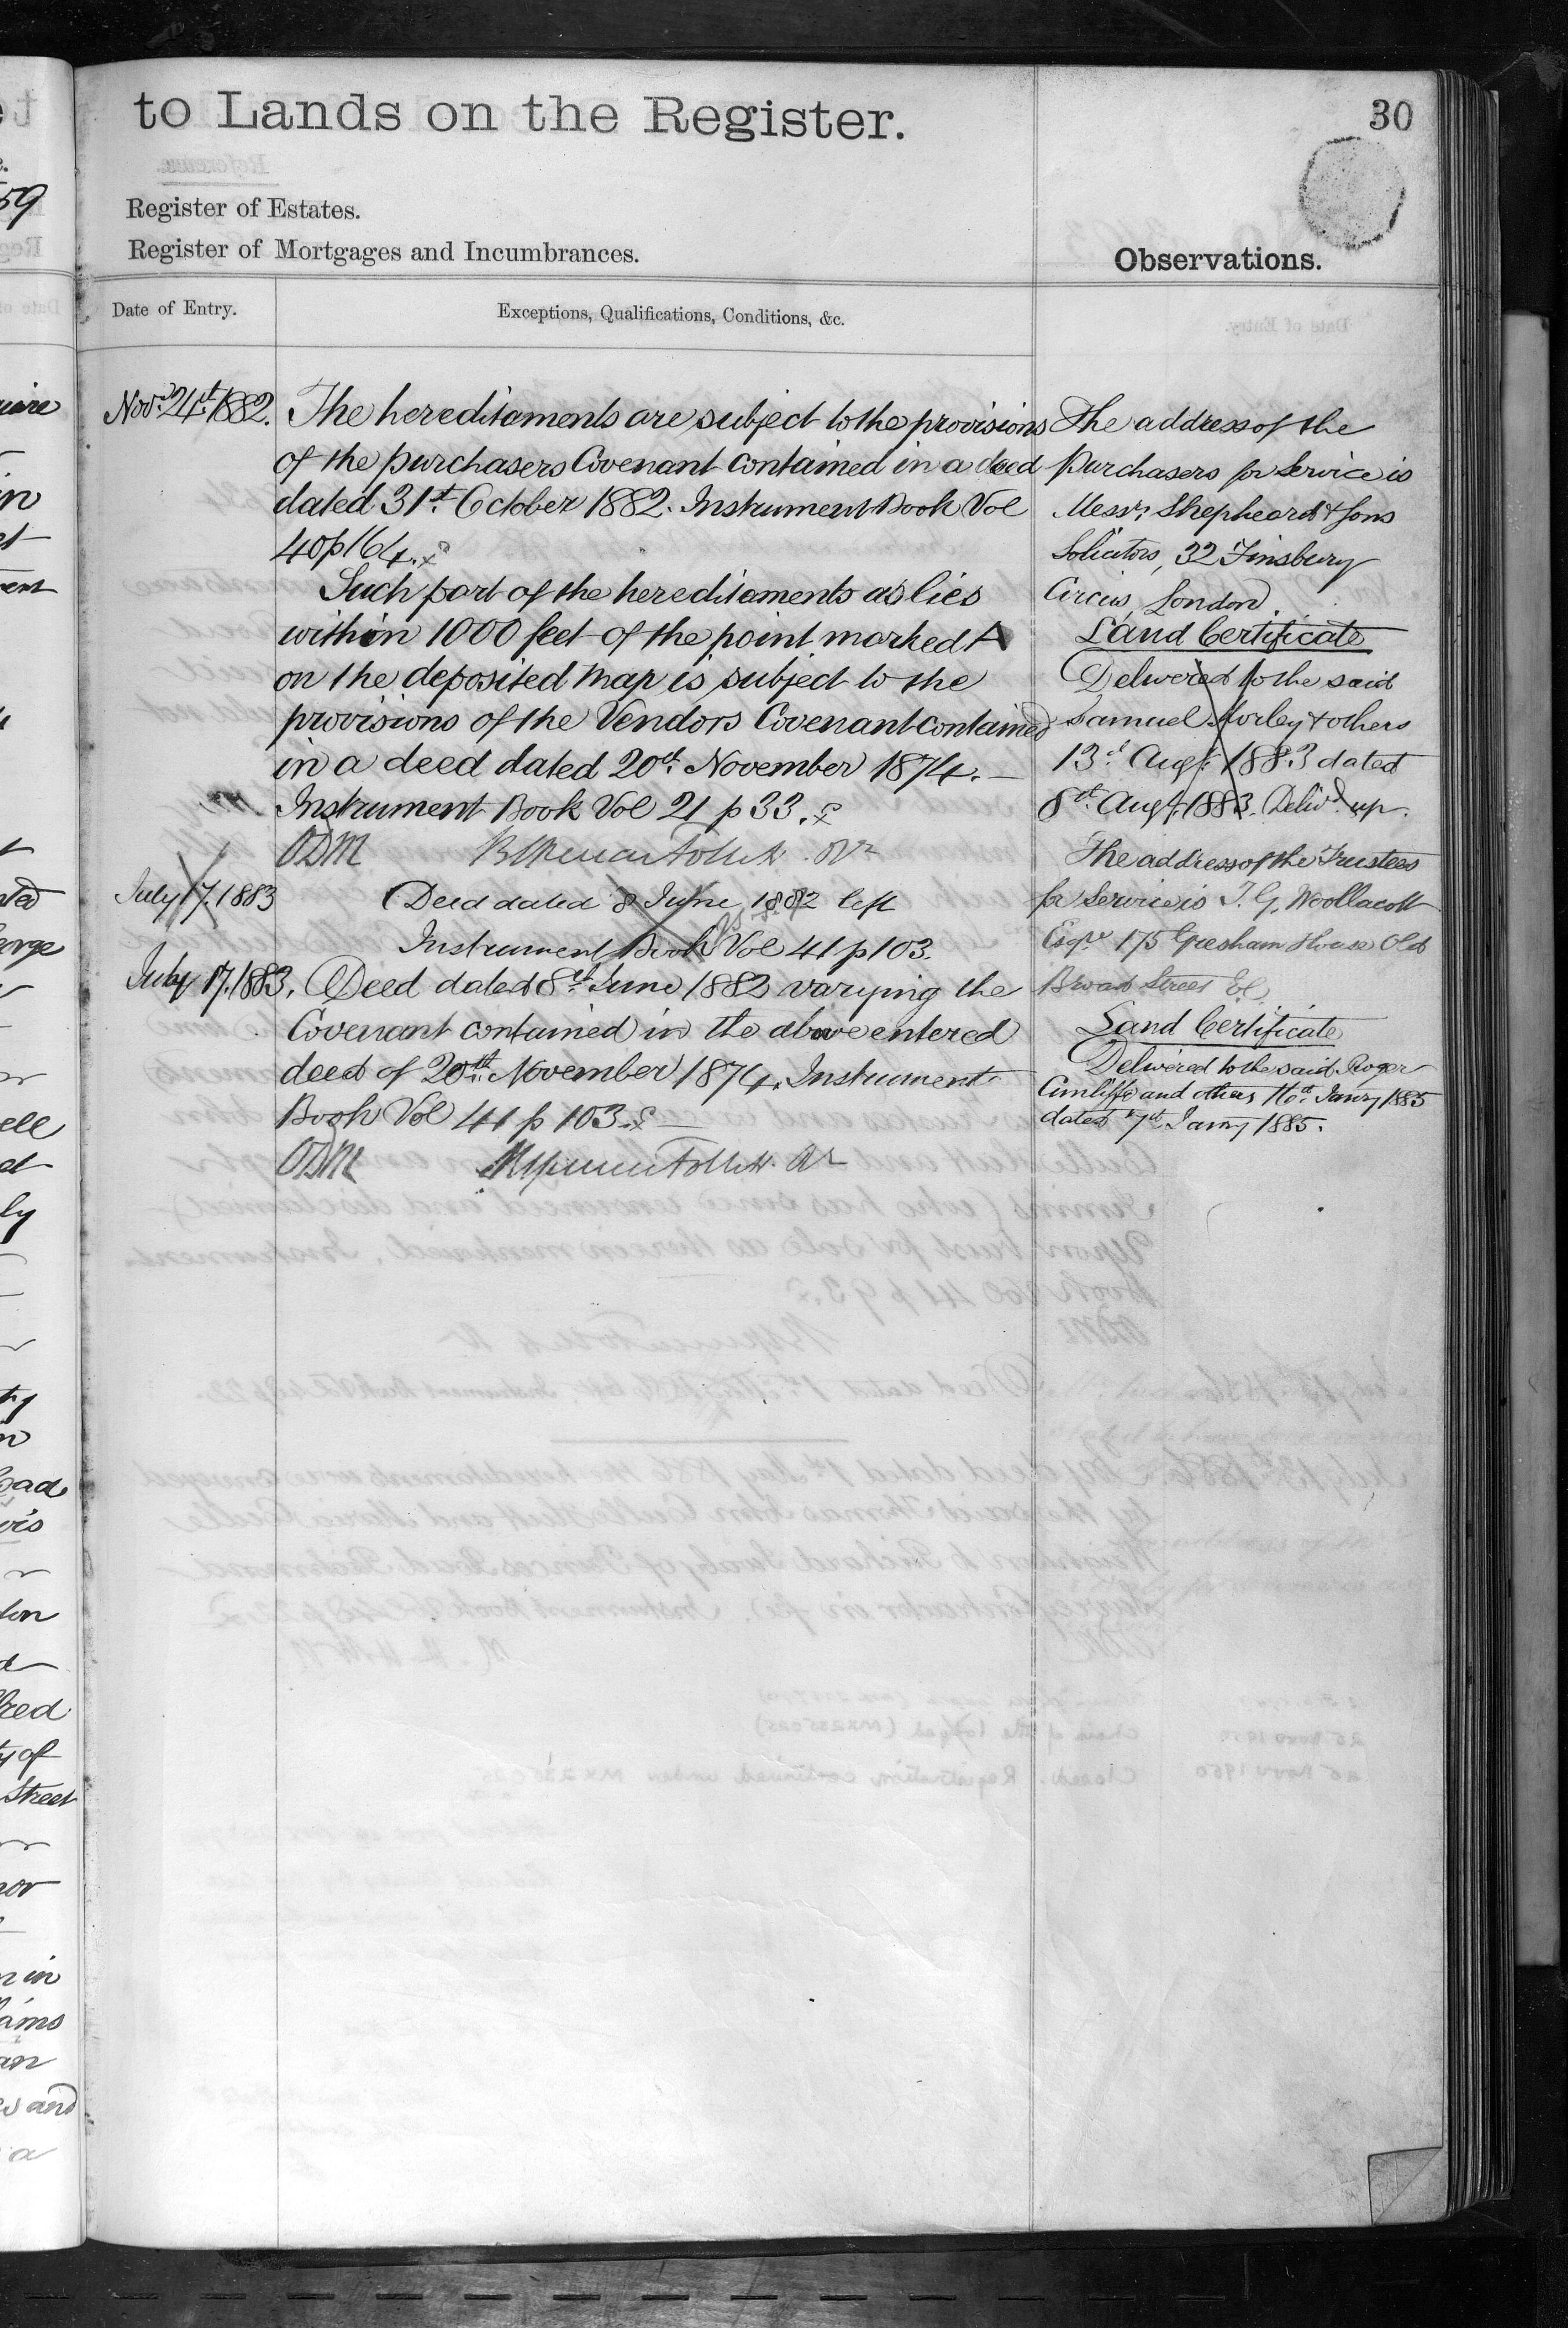 to Lands on the Register.
30
Register of Estates.
Register of Mortgages and Incumbrances.
Observations.
Date of Entry.
Exceptions, Qualifications, Conditions, &c.
Novr. 24th. 1882.
The hereditaments are subject to the provisions
of the purchasers Covenant contained in a deed
dated 31st. October 1882. Instrument Book Vol
40 p 164.
Such part of the hereditaments as lies
within 1000 feet of the point marked A
on the deposited map is subject to the
provisions of the Vendors Covenant contained
in a deed dated 20th. November 1874.
Instrument Book Vol 21 p 33.
ODM
July 17. 1883
Deed dated 8 June 1882 left
Instrument Book Vol 41 p 103.
July 17. 1883.
Deed dated 8th. June 1882 varying the
Covenant contained in the above entered
deed of 20th. November 1874. Instrument
Book Vol 41 p 103.
ODM
The address of the
purchasers for Service is
Messrs. Shepheard & Sons
Solicitors, 32 Finsbury
Circus, London.
Land Certificate
Delivered to the said
Samuel Morley & others
13th Augt. 1883 dated
8th. Augt. 1883. Delivd. up.
The address of the Trustees
for Service is T. G. Woollacott
Esqre 175 Gresham House Old
Broad Street EC
Land Certificate
Delivered to the said Roger
Cunliffe and others 16th. Jany 1885
dated 7th Jany 1885.